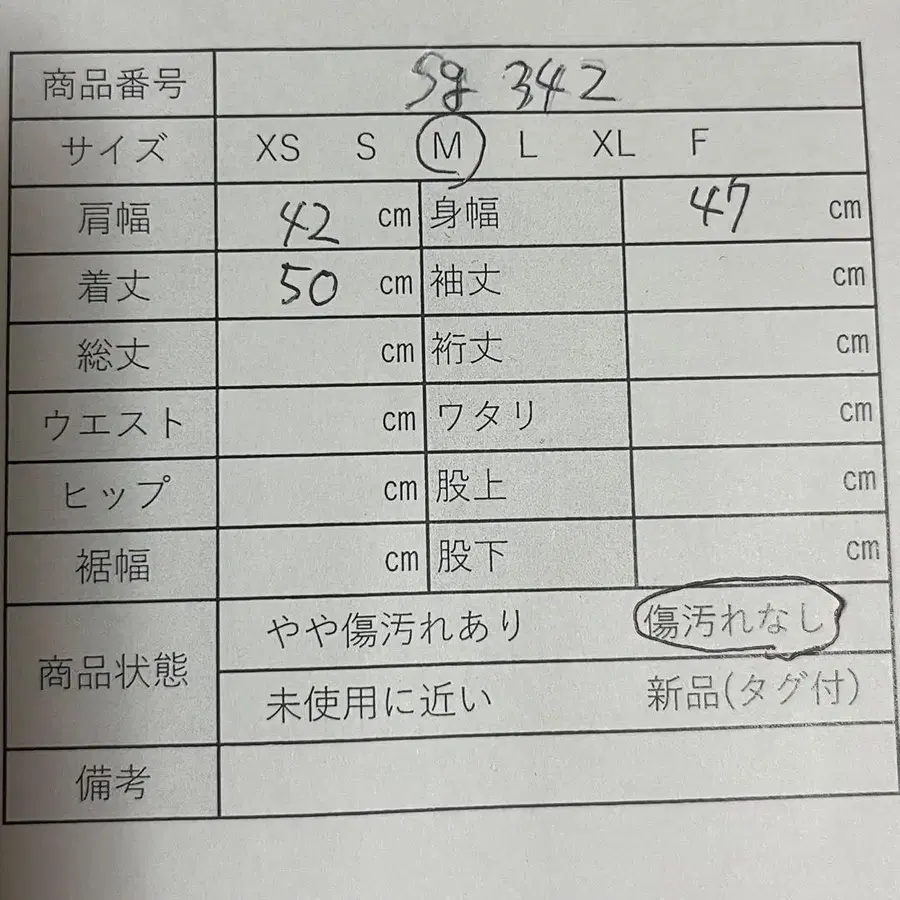 商品番号 Sg 342
サイズ XS S M L XL F
肩幅 42 cm 身幅 47 cm
着丈 50 cm 袖丈 cm
総丈 cm 裄丈 cm
ウエスト cm ワタリ cm
ヒップ cm 股上 cm
裾幅 cm 股下 cm
商品状態 やや傷汚れあり 傷汚れなし
未使用に近い 新品(タグ付)
備考